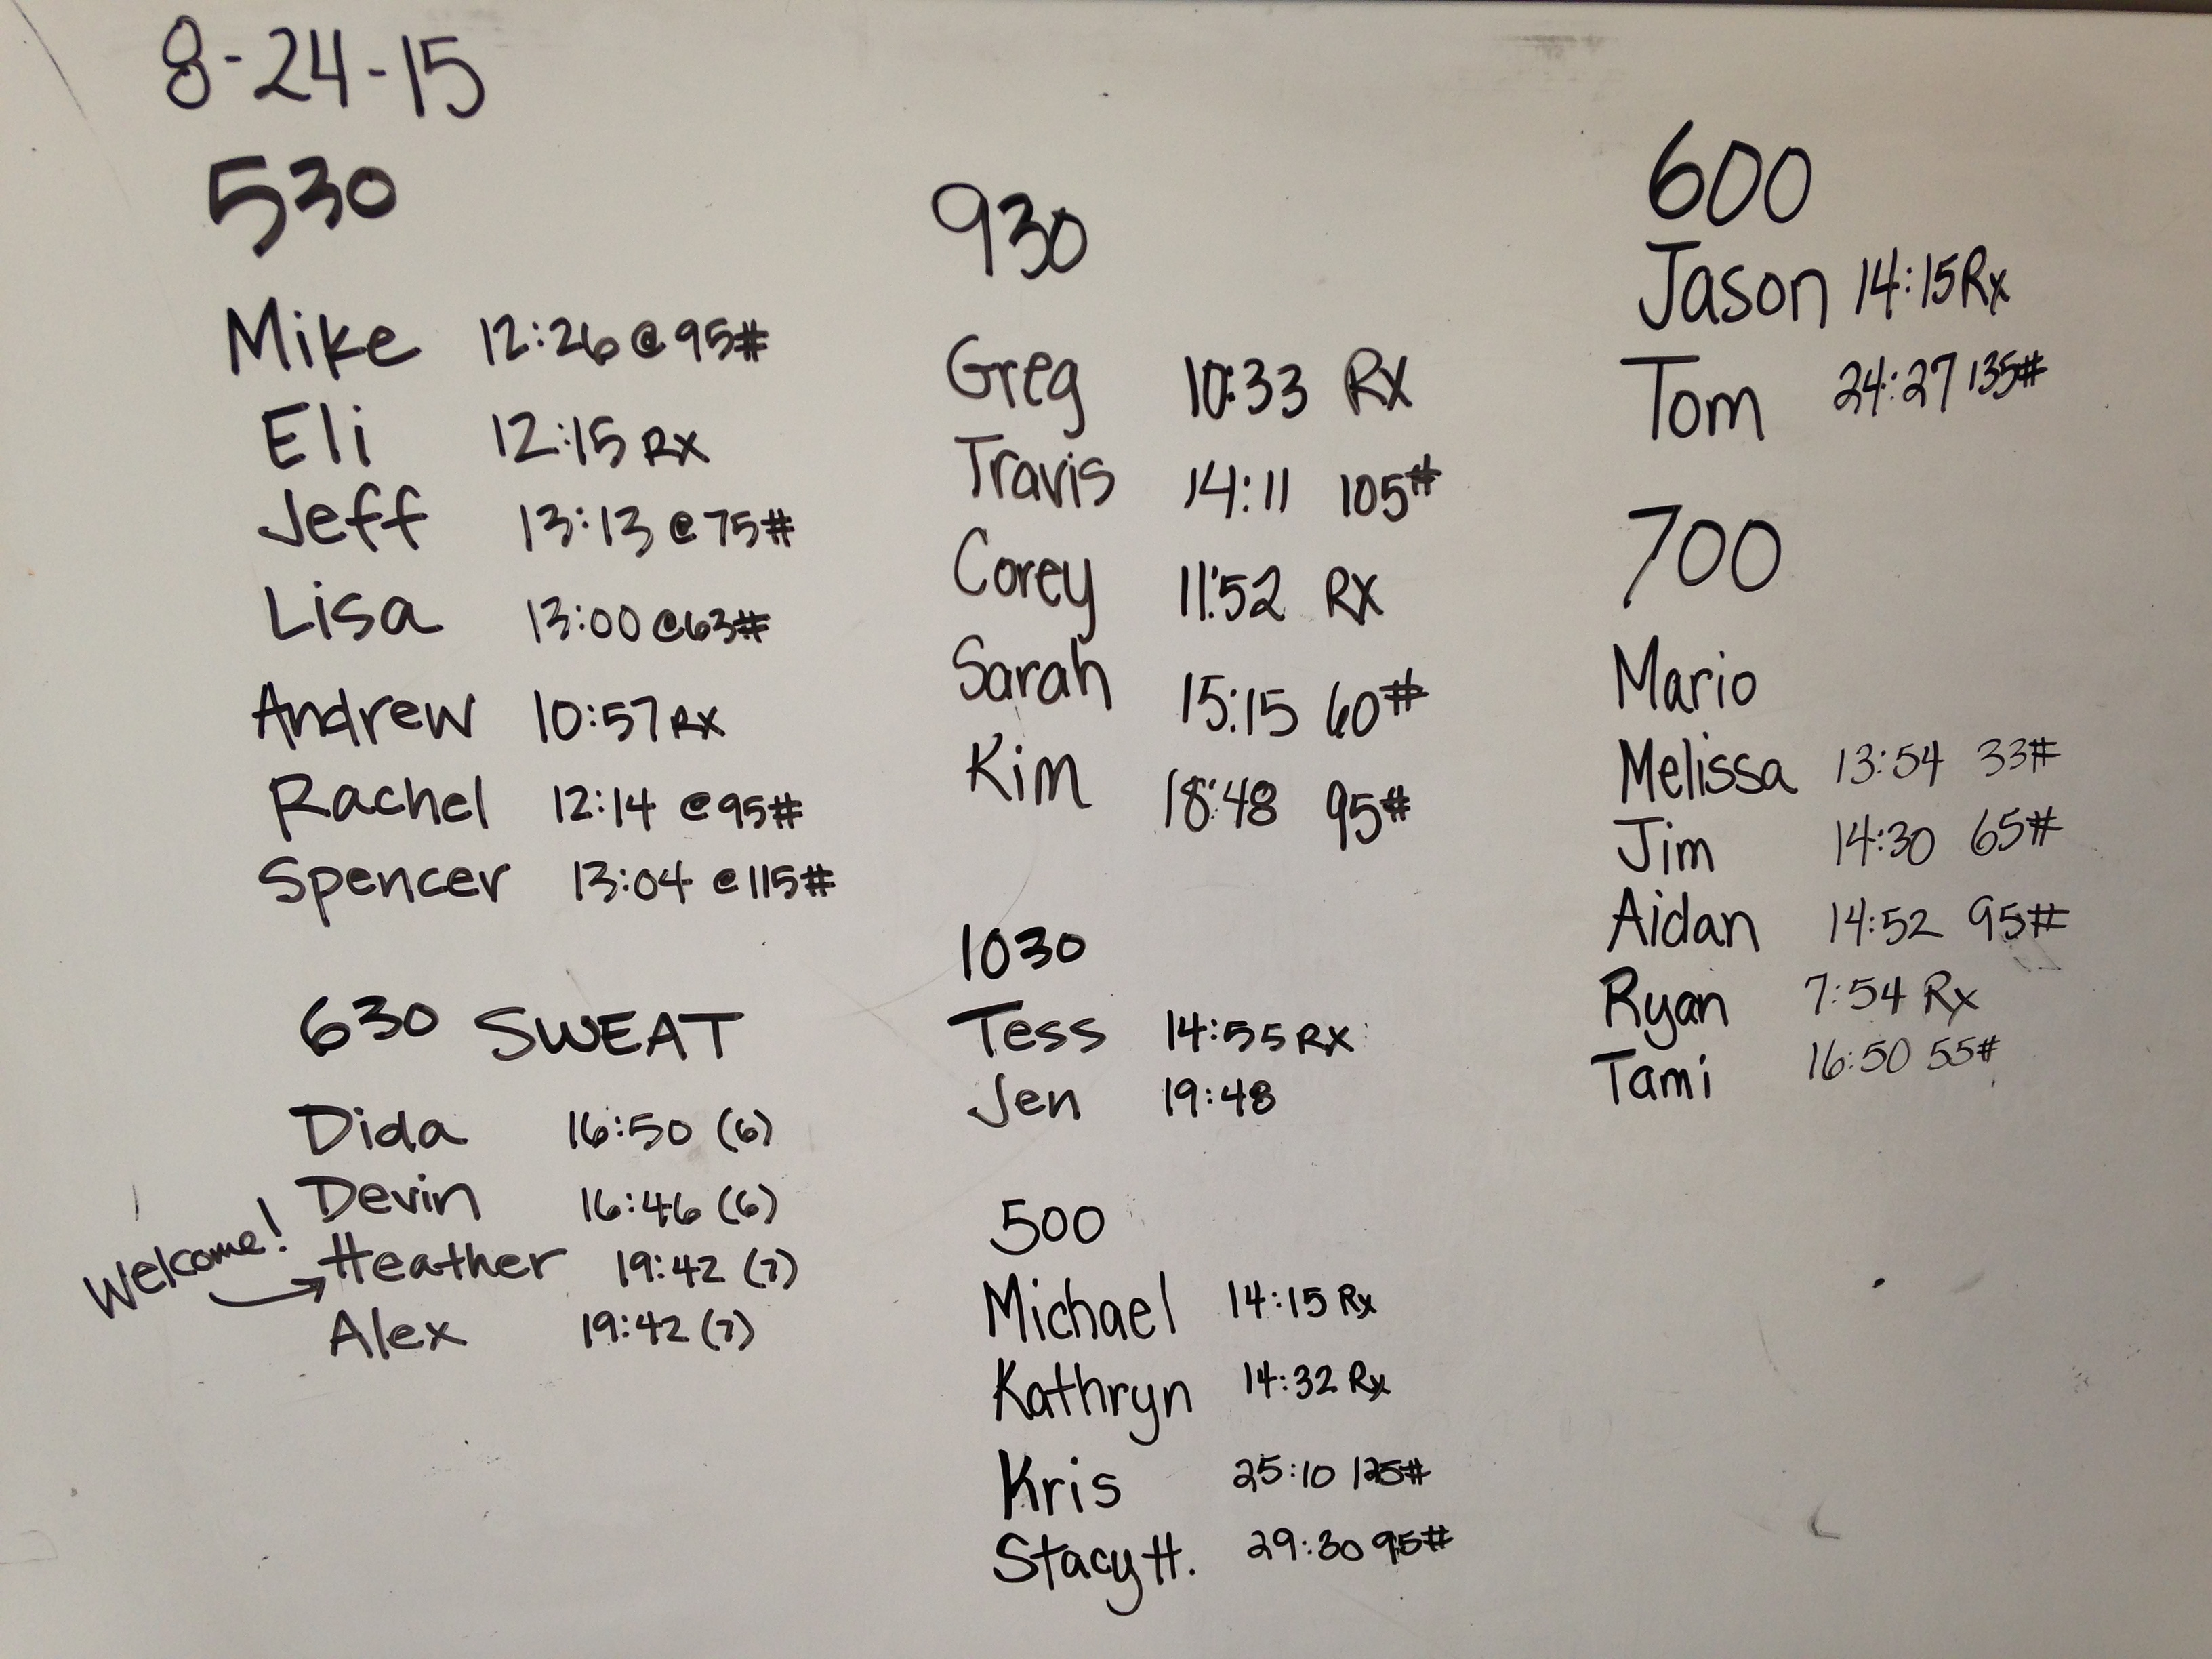 8-24-15
530
Mike 12:26 @ 95#
Eli 12:15 RX
Jeff 13:13 @ 75#
Lisa 13:00 @ 63#
Andrew 10:57 RX
Rachel 12:14 @ 95#
Spencer 13:04 @ 115#
630 SWEAT
Dida 16:50 (6)
Devin 16:46 (6)
Welcome! → Heather 19:42 (7)
Alex 19:42 (7)
930
Greg 10:33 RX
Travis 14:11 105#
Corey 11:52 RX
Sarah 15:15 60#
Kim 18:48 95#
1030
Tess 14:55 RX
Jen 19:48
500
Michael 14:15 Rx
Kathryn 14:32 Rx
Kris 25:10 125#
Stacy H. 29:30 95#
600
Jason 14:15 Rx
Tom 24:27 135#
700
Mario
Melissa 13:54 33#
Jim 14:30 65#
Aidan 14:52 95#
Ryan 7:54 Rx
Tami 16:50 55#